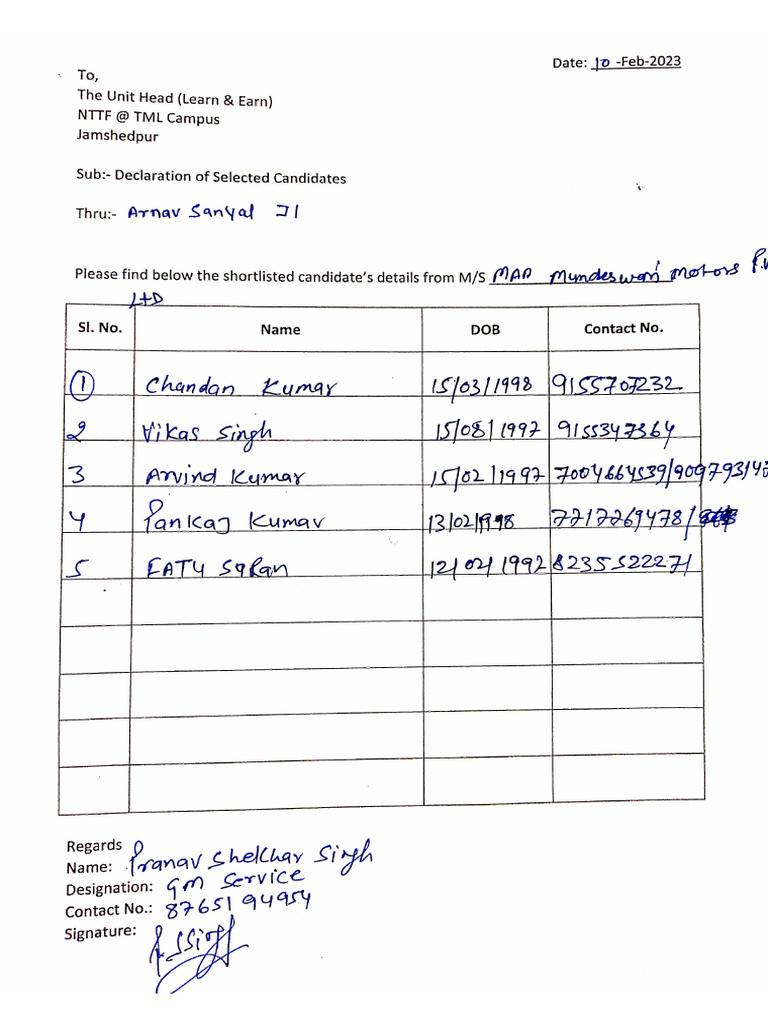 Date: 10 -Feb-2023
To,
The Unit Head (Learn & Earn)
NTTF @ TML Campus
Jamshedpur
Sub:- Declaration of Selected Candidates
Thru:- Arnav Sanyal JI
Please find below the shortlisted candidate's details from M/S MAA Mundeswari Motors P.v
LTD
Sl. No. Name DOB Contact No.
1 Chandan Kumar 15/03/1998 9155707232
2 Vikas Singh 15/08/1997 9155347364
3 Arvind Kumar 15/02/1997 7004664539/
4 Pankaj Kumar 13/02/1998 7217269478/
5 12/02/1992 8235522271
Regards
Name: Pranav Shekhar Singh
Designation: GM Service
Contact No.: 8765194954
Signature: